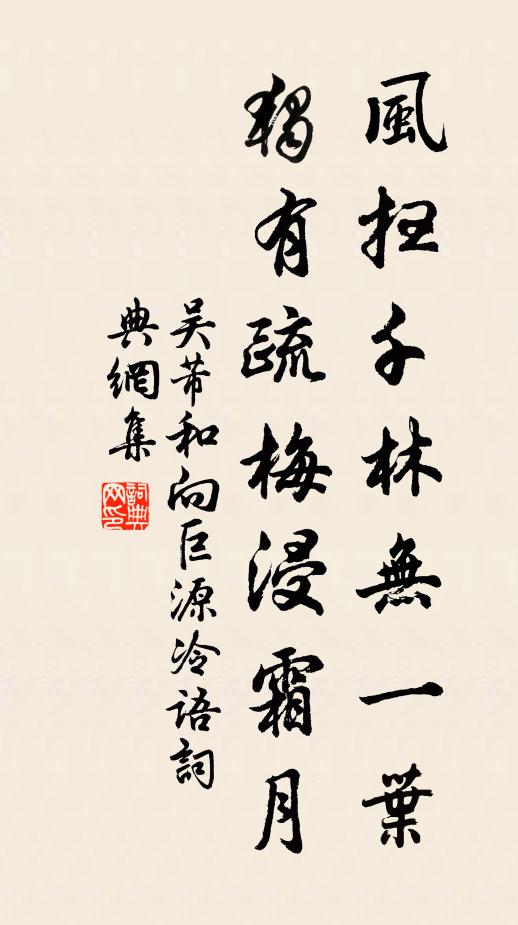 風掃千林無一葉
獨有疏梅浸霜月
吳芾和向巨源冷語詞
典網集
詞典
网印